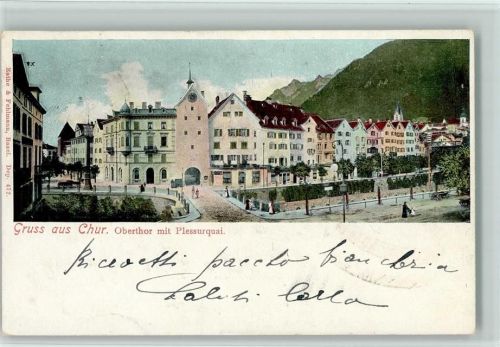 Rathe & Fehlmann, Basel. Dep. 472.
Gruss aus Chur. Oberthor mit Plessurquai.
Ricevetti pacco biancheria
Saluti Carlo